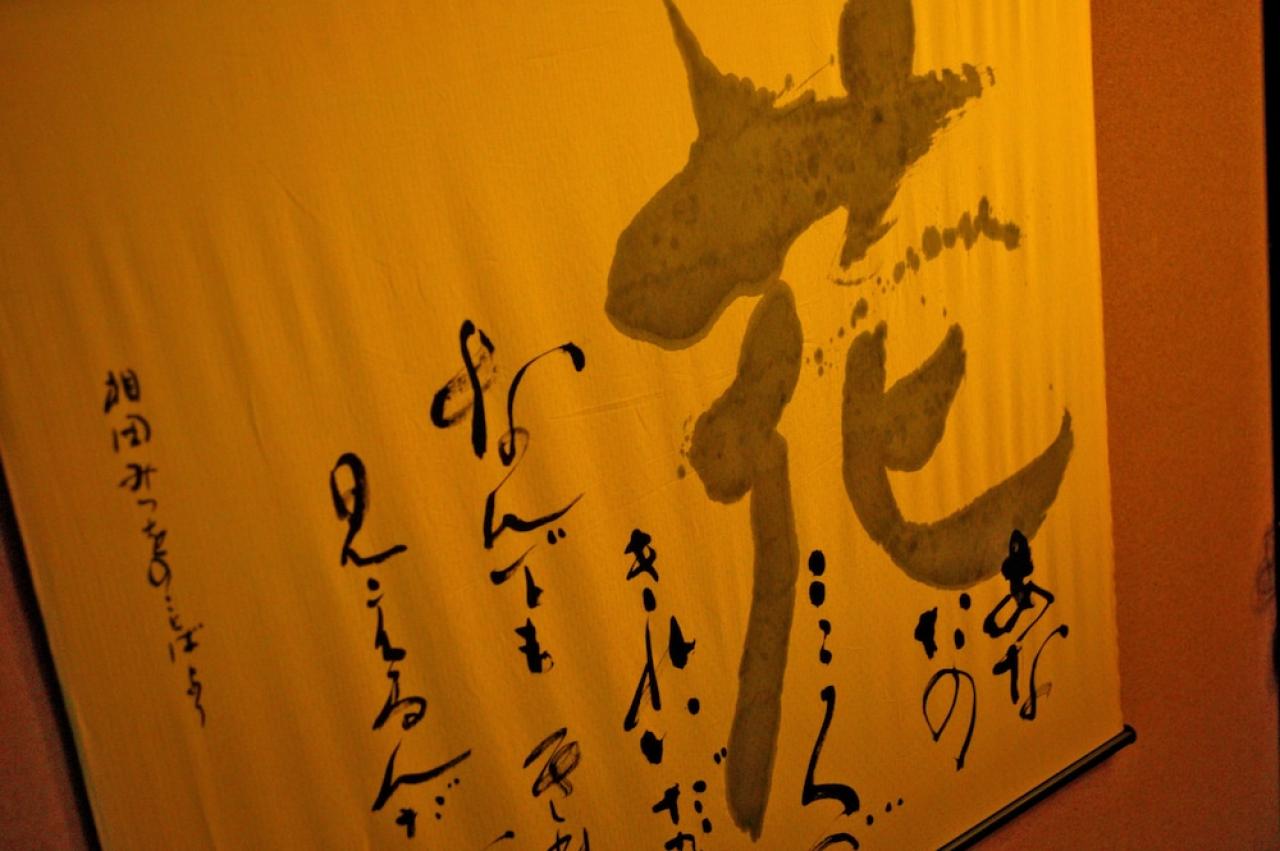 花
あな
たの
こころが
きれいだか
なんでもきれ
見えるんだ
相田みつをのことばより